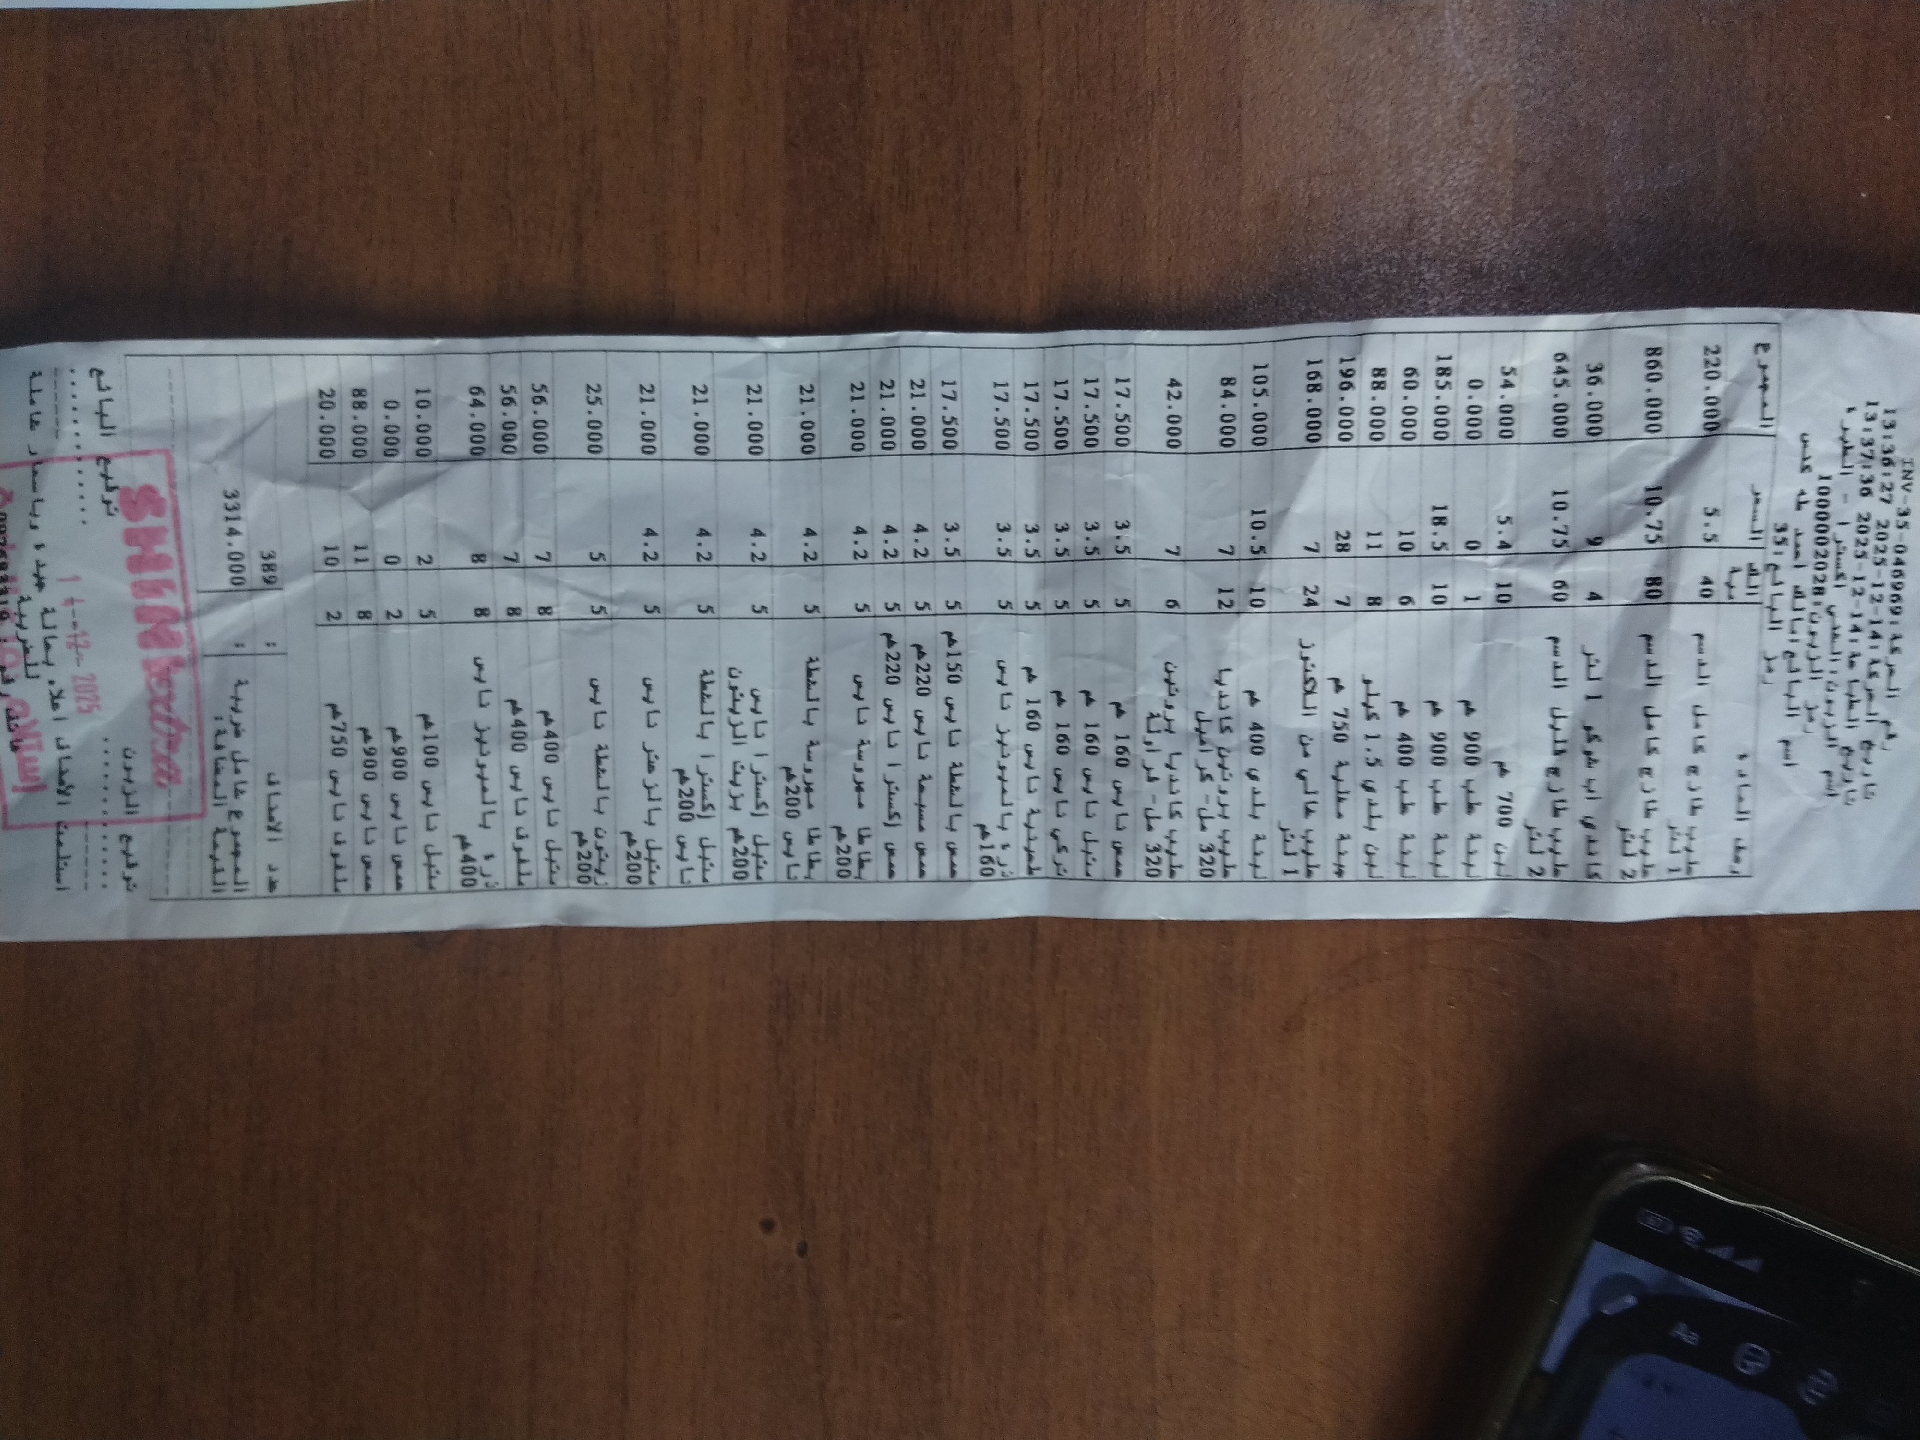 رقم الحركة: INV-35-046969
تاريخ الحركة: 2025-12-14 13:36:27
تاريخ الطباعة: 2025-12-14 13:37:36
اسم الزبون: الشني اكسترا - الطيرة
رمز الزبون: 100002028
اسم البائع: مالك احمد طه
رمز البائع: 35
وصف المادة الكمية السعر المجموع
حليب طازج كامل الدسم 1 لتر 40 5.5 220.000
حليب طازج كامل الدسم 2 لتر 80 10.75 860.000
كاندي اب شوكو 1 لتر 4 9 36.000
حليب طازج قليل الدسم 2 لتر 60 10.75 645.000
لبن 700 غم 10 5.4 54.000
لبنة علب 900 غم 1 0 0.000
لبنة علب 900 غم 10 18.5 185.000
لبنة علب 400 غم 6 10 60.000
لبن بلدي 1.5 كيلو 8 11 88.000
جبنة مغلية 750 غم 7 28 196.000
حليب خالي من اللاكتوز 1 لتر 24 7 168.000
لبنة بلدي 400 غم 10 10.5 105.000
حليب بروتين كانديا 320 مل- كراميل 12 7 84.000
حليب كانديا بروتين 320 مل- فراولة 6 7 42.000
حمص نايس 160 غم 5 3.5 17.500
متبل نايس 160 غم 5 3.5 17.500
تركي نايس 160 غم 5 3.5 17.500
طحينية نايس 160 غم 5 3.5 17.500
ذرة بالميونيز نايس 160غم 5 3.5 17.500
حمص بالشطة نايس 150غم 5 3.5 17.500
حمص مسبحة نايس 220غم 5 4.2 21.000
حمص إكسترا نايس 220غم 5 4.2 21.000
بطاطا مهروسة نايس 200غم 5 4.2 21.000
بطاطا مهروسة بالشطة نايس 200غم 5 4.2 21.000
متبل إكسترا نايس بزيت الزيتون 200غم 5 4.2 21.000
متبل إكسترا بالشطة نايس 200غم 5 4.2 21.000
متبل بالزعتر نايس 200غم 5 4.2 21.000
زيتون بالشطة نايس 200غم 5 5 25.000
متبل نايس 400غم 8 7 56.000
ملفوف نايس 400غم 8 7 56.000
ذرة بالميونيز نايس 400غم 8 8 64.000
متبل نايس 100غم 5 2 10.000
حمص نايس 900غم 2 0 0.000
حمص نايس 900غم 8 11 88.000
ملفوف نايس 750غم 2 10 20.000
عدد الاصناف : 389
المجموع شامل ضريبة القيمة المضافة: : 3314.000
توقيع الزبون توقيع البائع
استلمت الأصناف اعلاه بحالة جيدة وبأسعار شاملة للضريبة
SHINI extra
14-12-2025
استلام